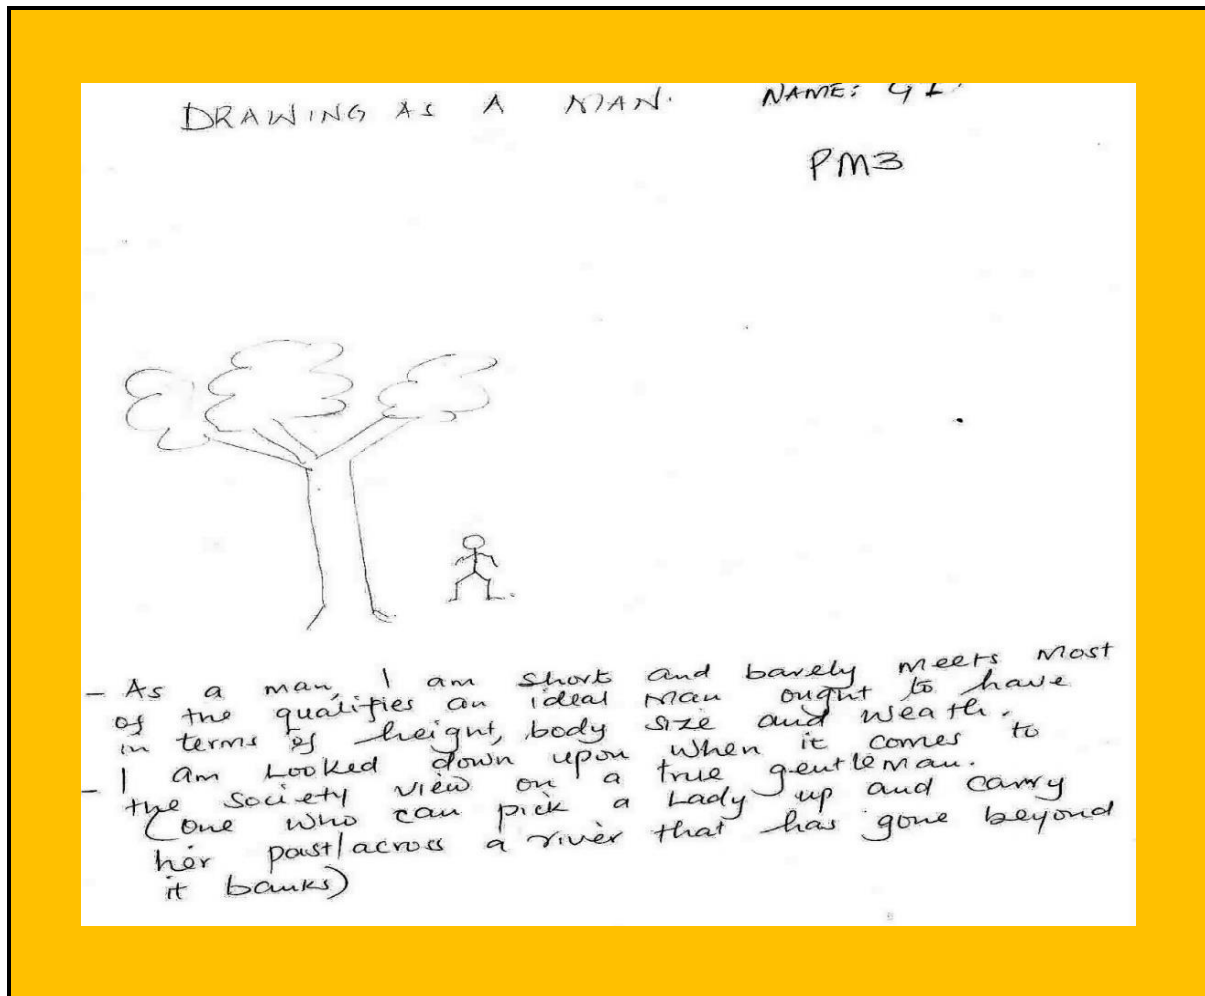 DRAWING AS A MAN. NAME:
PM3
- As a man, I am short and barely meets most
of the qualifies an ideal man ought to have
in terms of height, body size and weath.
- I am looked down upon when it comes to
the society view on a true gentleman.
(one who can pick a Lady up and carry
her past/across a river that has gone beyond
it banks)